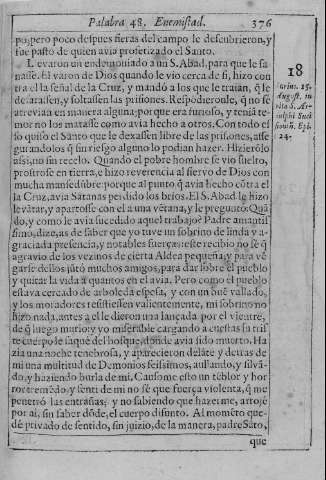 Palabra 48. Enemistad. 376
po; pero poco despues fieras del campo le descubrieron, y
fue pasto de quien avia profetizado el Santo.
Llevaron un endemoniado a un S. Abad, para que le sa
nasse. El varon de Dios quando le vio cerca de si, hizo con
tra el la señal de la Cruz, y mandó a los que le traian, q̃ le
desatassen, y soltassen las prisiones. Respodieronle, q̃ no se
atrevian en manera alguna; porque era furioso, y tenia te
mor no los matasse como avia hecho a otros. Con todo es
so quiso el Santo que le dexassen libre de las prisiones, asse
gurandolos q̃ sin riesgo alguno lo podian hazer. Hizierõlo
assi, no sin recelo. Quando el pobre hombre se viò suelto,
prostrose en tierra, e hizo reverencia al siervo de Dios con
mucha mansedũbre: porque al punto q̃ avia hecho cõtra el
la Cruz, avia Satanas perdido los brios. El S. Abad le hizo
levãtar, y apartose con el a una vẽtana, y le preguntó: Quã
do, y como le avia sucedido aquel trabajo? Padre amantissi
simo, dize, as de saber que yo tuve un sobrino de linda y a-
graciada presencia, y notables fuerças: este recibio no se q̃
agravio de los vezinos de cierta Aldea pequeña; y para vẽ
garse dellos jũtó muchos amigos, para dar sobre el pueblo
y quitar la vida a quantos en el avia. Pero como el pueblo
estava cercado de arboleda espesa, y con un buẽ vallado,
y los moradores resistiessen valientemente, mi sobrino no
hizo nada, antes a el le dieron una lançada por el vientre,
de q̃ luego murio: y yo miserable cargando a cuestas su tris
te cuerpo le saquè del bosque, donde avia sido muerto. Ha
zia una noche tenebrosa, y aparecieron delãte y detras de
mi una multitud de Demonios feissimos, aullando, y silvã-
do, y haziendo burla de mi. Causome esto un tẽblor y hor
ror tremẽdo: y senti de mi no se que fuerça violenta, q̃ me
penetró las entrañas: y no sabiendo que hazerme, arrojè
por ai, sin saber dõde, el cuerpo difunto. Al momẽto que-
dè privado de sentido, sin juizio, de la manera, padre Sãto,
que
18
24.